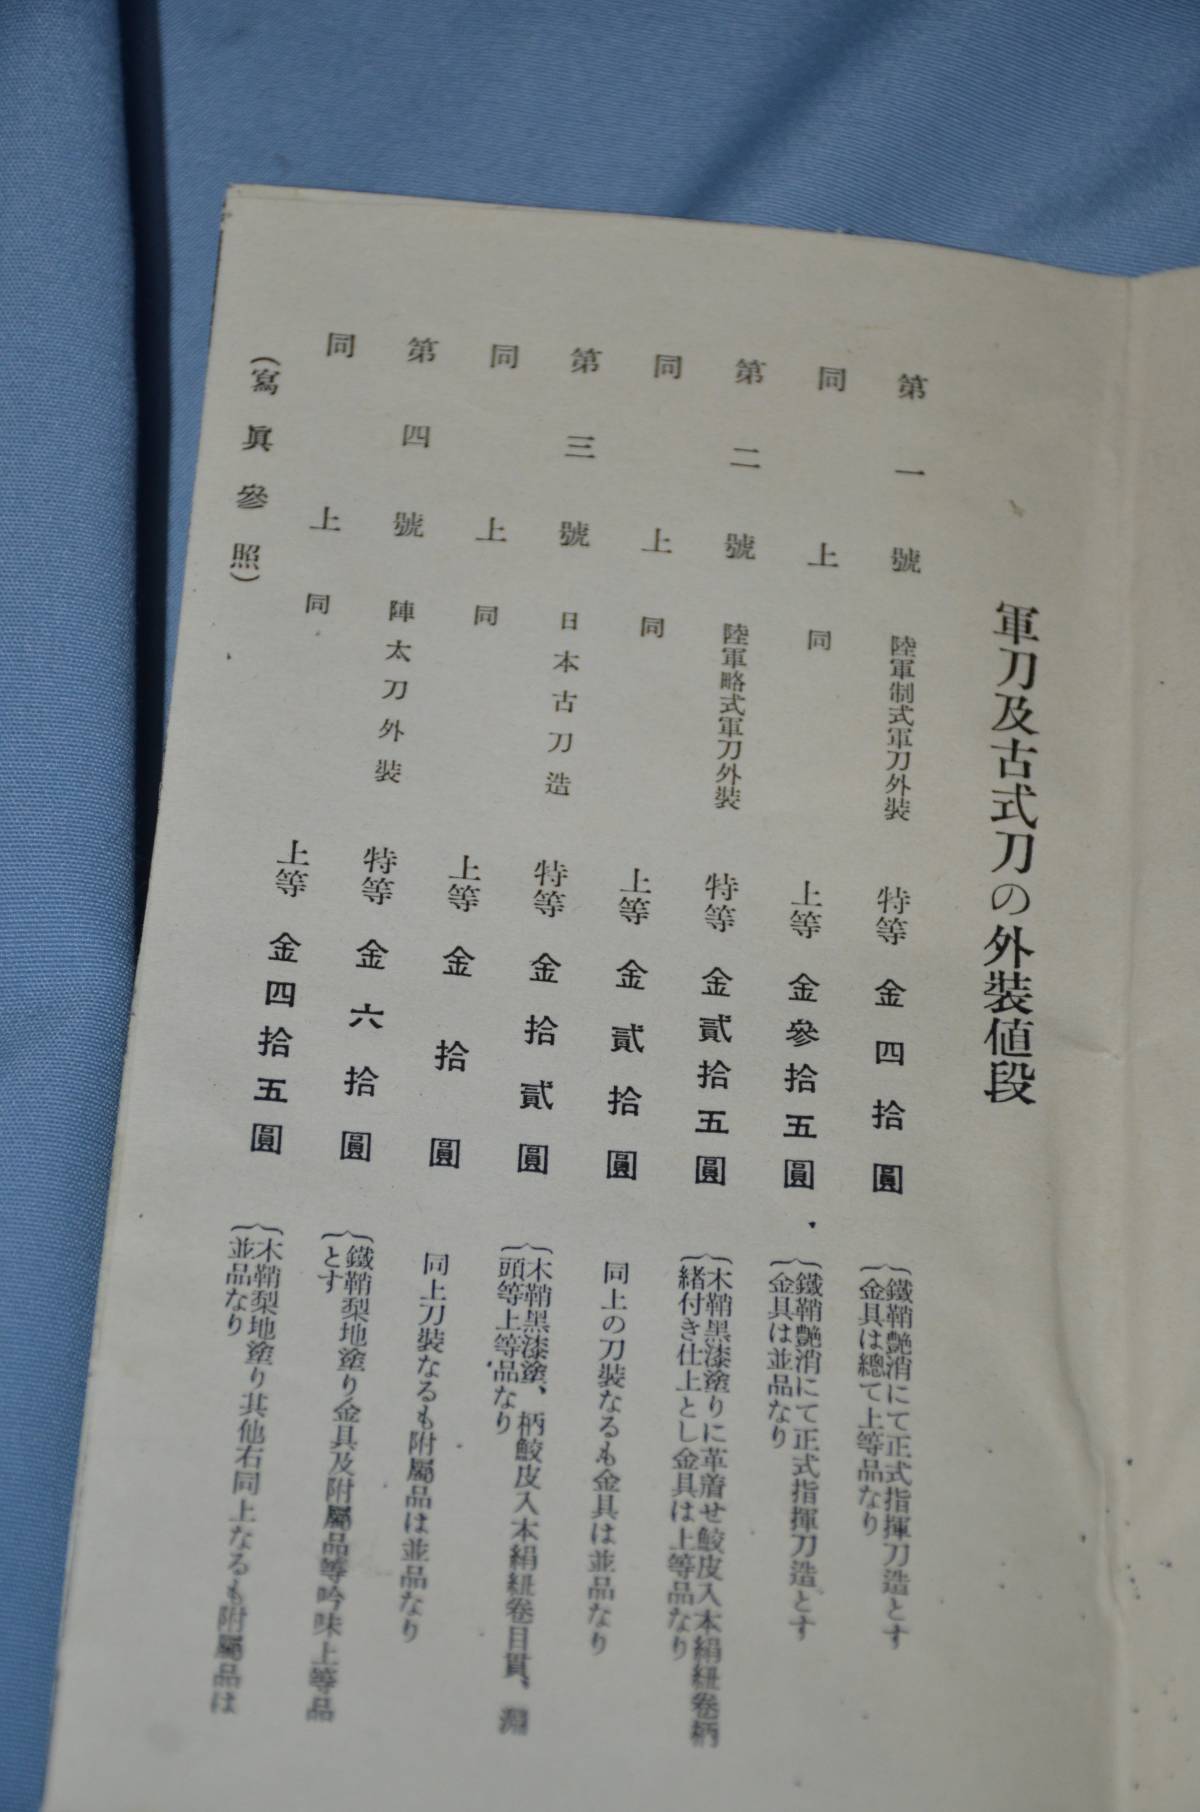 軍刀及古式刀の外裝値段
第一號 陸軍制式軍刀外裝 特等 金四拾圓 鐵鞘艶消にて正式指揮刀造とす
金具は總て上等品なり
同上 同 上等 金參拾五圓 鐵鞘艶消にて正式指揮刀造とす
金具は並品なり
第二號 陸軍略式軍刀外裝 特等 金貳拾五圓 木鞘黑漆塗りに革着せ鮫皮入本絹紐卷柄
緒付き仕上とし金具は上等品なり
同上 同 上等 金貳拾圓 同上の刀裝なるも金具は並品なり
第三號 日本古刀造 特等 金拾貳圓 木鞘黑漆塗、柄鮫皮入本絹紐卷目貫、淵
頭等上等品なり
同上 同 上等 金拾圓 同上刀裝なるも附屬品は並品なり
第四號 陣太刀外裝 特等 金六拾圓 鐵鞘梨地塗り金具及附屬品等吟味上等品
とす
同上 同 上等 金四拾五圓 木鞘梨地塗り其他右同上なるも附屬品は
並品なり
(寫眞參照)